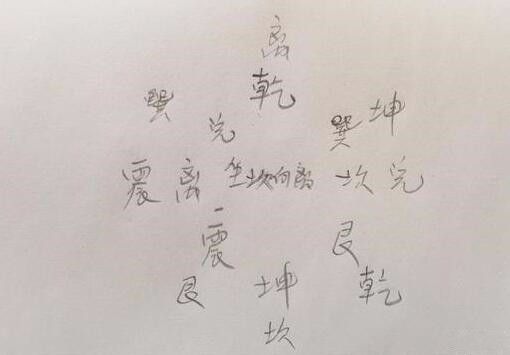 离
乾
巽 兑 巽 坤
震 离 坐坎向离 坎 兑
二
震 艮
艮 坤 乾
坎